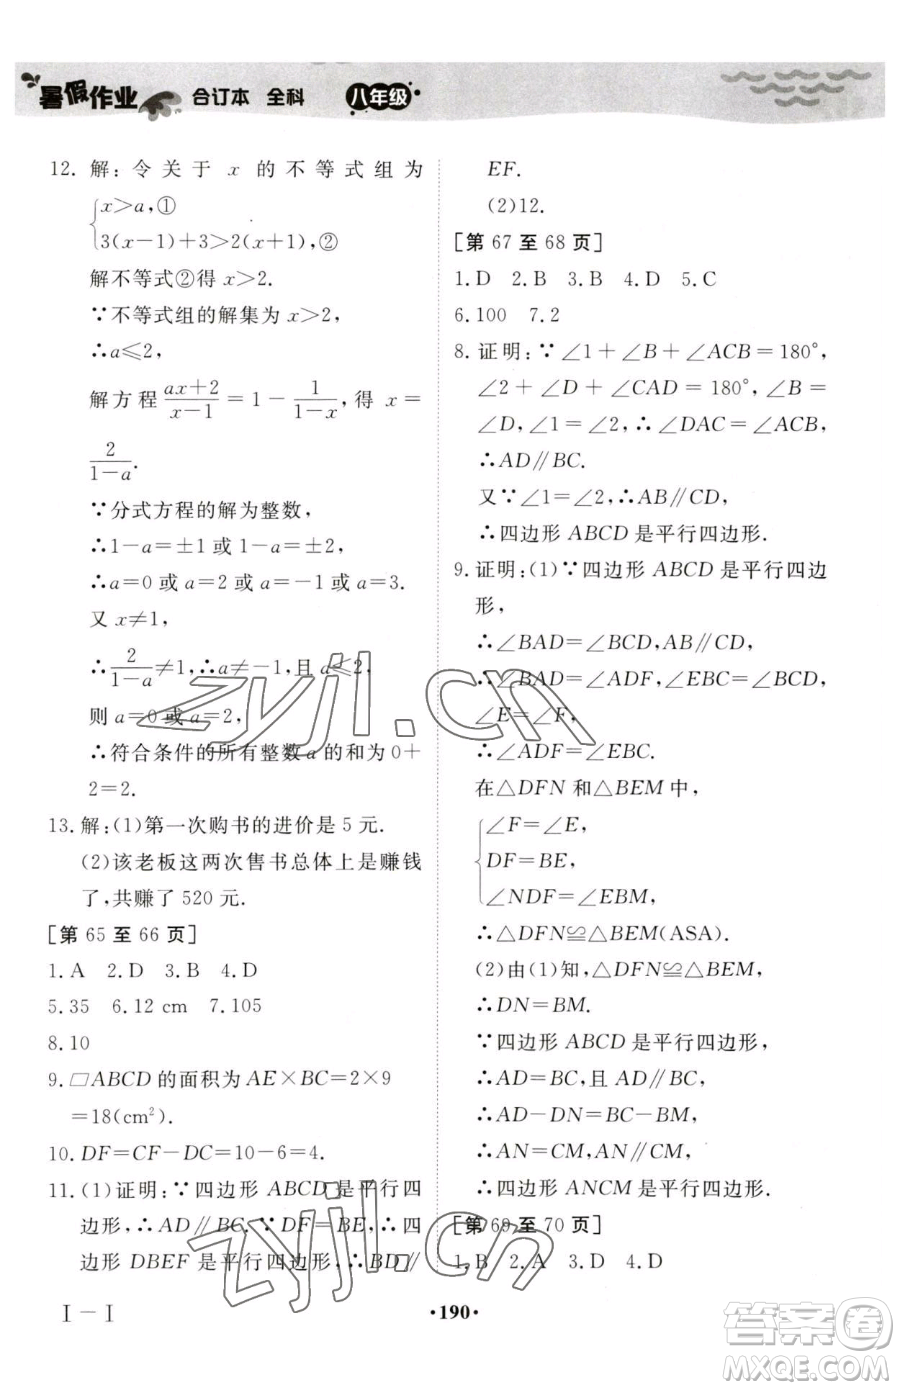 暑假作业 合订本 全科 八年级
12. 解:令关于 x 的不等式组为
{x>a,①
3(x-1)+3>2(x+1),②
解不等式②得 x>2.
∵不等式组的解集为 x>2,
∴a≤2,
解方程 (ax+2)/(x-1) = 1 - 1/(1-x),得 x =
2/(1-a).
∵分式方程的解为整数,
∴1-a=±1 或 1-a=±2,
∴a=0 或 a=2 或 a=-1 或 a=3.
又 x≠1,
∴2/(1-a)≠1,∴a≠-1,且 a≤2,
则 a=0 或 a=2,
∴符合条件的所有整数 a 的和为 0+
2=2.
13. 解:(1)第一次购书的进价是 5 元.
(2)该老板这两次售书总体上是赚钱
了,共赚了 520 元.
[第 65 至 66 页]
1. A 2. D 3. B 4. D
5. 35 6. 12 cm 7. 105
8. 10
9. □ABCD 的面积为 AE×BC=2×9
=18(cm²).
10. DF=CF-DC=10-6=4.
11. (1)证明:∵四边形 ABCD 是平行四
边形,∴AD∥BC.∵DF=BE,∴四
边形 DBEF 是平行四边形,∴BD∥
EF.
(2)12.
[第 67 至 68 页]
1. D 2. B 3. B 4. D 5. C
6. 100 7. 2
8. 证明:∵∠1+∠B+∠ACB=180°,
∠2+∠D+∠CAD=180°,∠B=
∠D,∠1=∠2,∴∠DAC=∠ACB,
∴AD∥BC.
又∵∠1=∠2,∴AB∥CD,
∴四边形 ABCD 是平行四边形.
9. 证明:(1)∵四边形 ABCD 是平行四边
形,
∴∠BAD=∠BCD,AB∥CD,
∴∠BAD=∠ADF,∠EBC=∠BCD,
∠E=∠F,
∴∠ADF=∠EBC.
在△DFN 和△BEM 中,
{∠F=∠E,
DF=BE,
∠NDF=∠EBM,
∴△DFN≌△BEM(ASA).
(2)由(1)知,△DFN≌△BEM,
∴DN=BM.
∵四边形 ABCD 是平行四边形,
∴AD=BC,且 AD∥BC,
∴AD-DN=BC-BM,
∴AN=CM,AN∥CM,
∴四边形 ANCM 是平行四边形.
[第 69 至 70 页]
1. B 2. A 3. D 4. D
I-I
·190·
zyjl.cn
zyjl.cn
答案圈
MXQE.COM